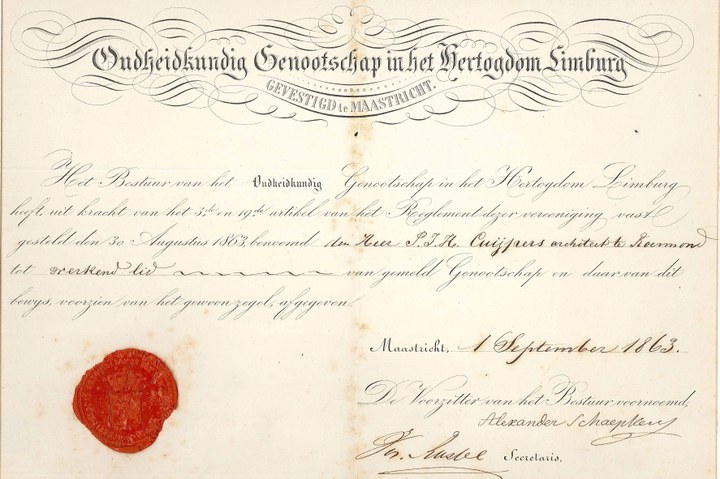 Oudheidkundig Genootschap in het Hertogdom Limburg
GEVESTIGD te MAASTRICHT.
Het Bestuur van het Oudheidkundig Genootschap in het Hertogdom Limburg
heeft, uit kracht van het 3de en 19de artikel van het Reglement dezer vereeniging vast
gesteld den 30 Augustus 1863, benoemd den Heer P. J. H. Cuijpers architekt te Roermond
tot werkend lid van gemeld Genootschap en daar van dit
bewys, voorzien van het gewoon zegel, afgegeven.
Maastricht, 1 September 1863.
De Voorzitter van het Bestuur voornoemd,
Alexander Schaepkens
Secretaris.